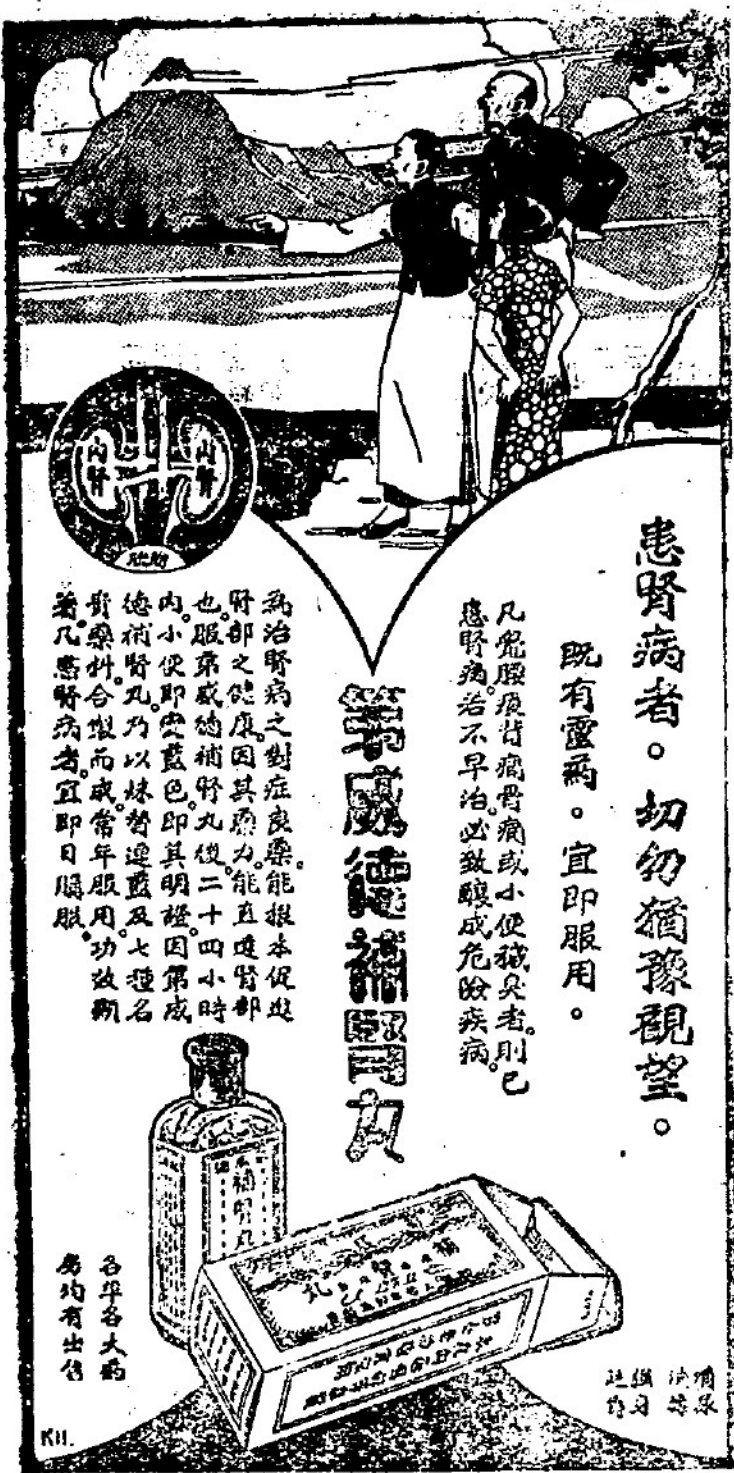 患腎病者。切勿猶豫觀望。
既有靈藥。宜即服用。
凡覺腰痠背痛骨痛或小便穢臭者。則已
患腎病。若不早治。必致釀成危險疾病。
第威德補腎丸
為治腎病之對症良藥。能根本促進
腎部之健康。因其藥力。能直達腎部
也。服第威德補腎丸後。二十四小時
內。小便即變藍色。即其明證。因第威
德補腎丸。乃以妹替連藍及七種名
貴藥料。合製而成。常年服用。功效顯
著。凡患腎病者。宜即日購服。
內腎
內腎
膀胱
補腎丸
各埠各大藥
房均有出售
K11.